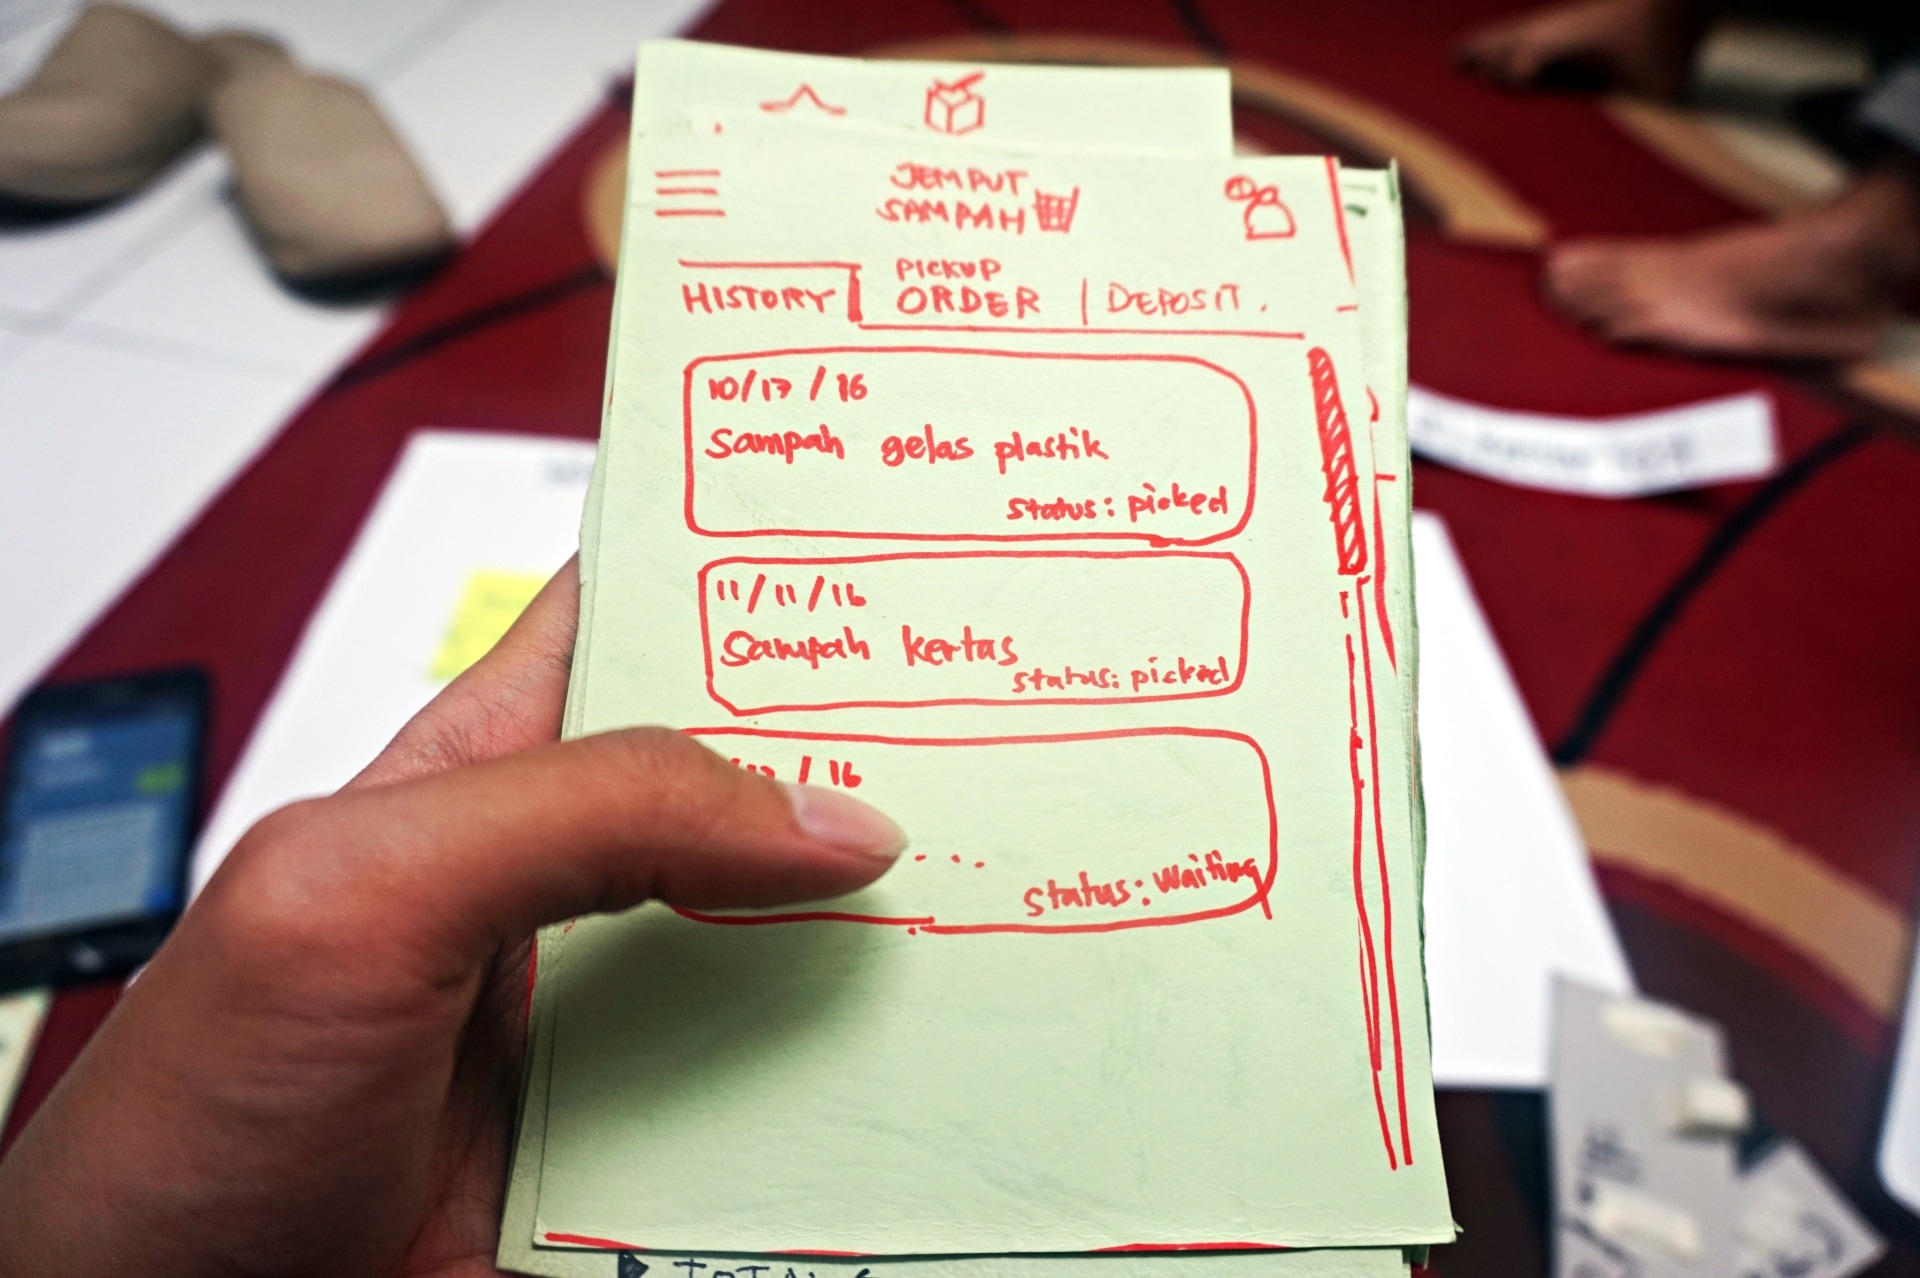 JEMPUT
SAMPAH
HISTORY
PICKUP
ORDER
DEPOSIT.
10/17/16
Sampah gelas plastik
status: picked
11/11/16
Sampah kertas
status: picked
/ 16
....
status: waiting